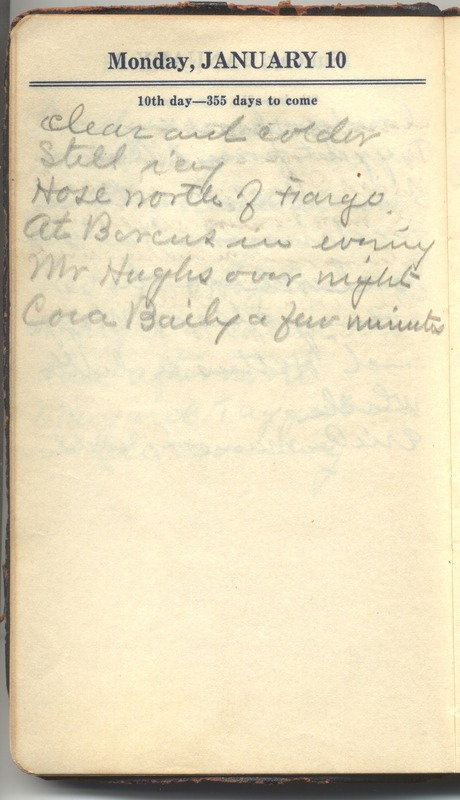 Monday, JANUARY 10
10th day—355 days to come
clear and colder
Still icy
Hose north of Fargo
At Borcus in evening
Mr Hughs over night
Cora Baily a few minutes